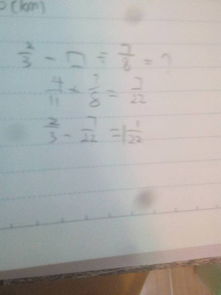 (km)
2/3 - □ ÷ 7/8 = ?
4/11 × 7/8 = 7/22
2/3 - 7/22 = 1 1/22